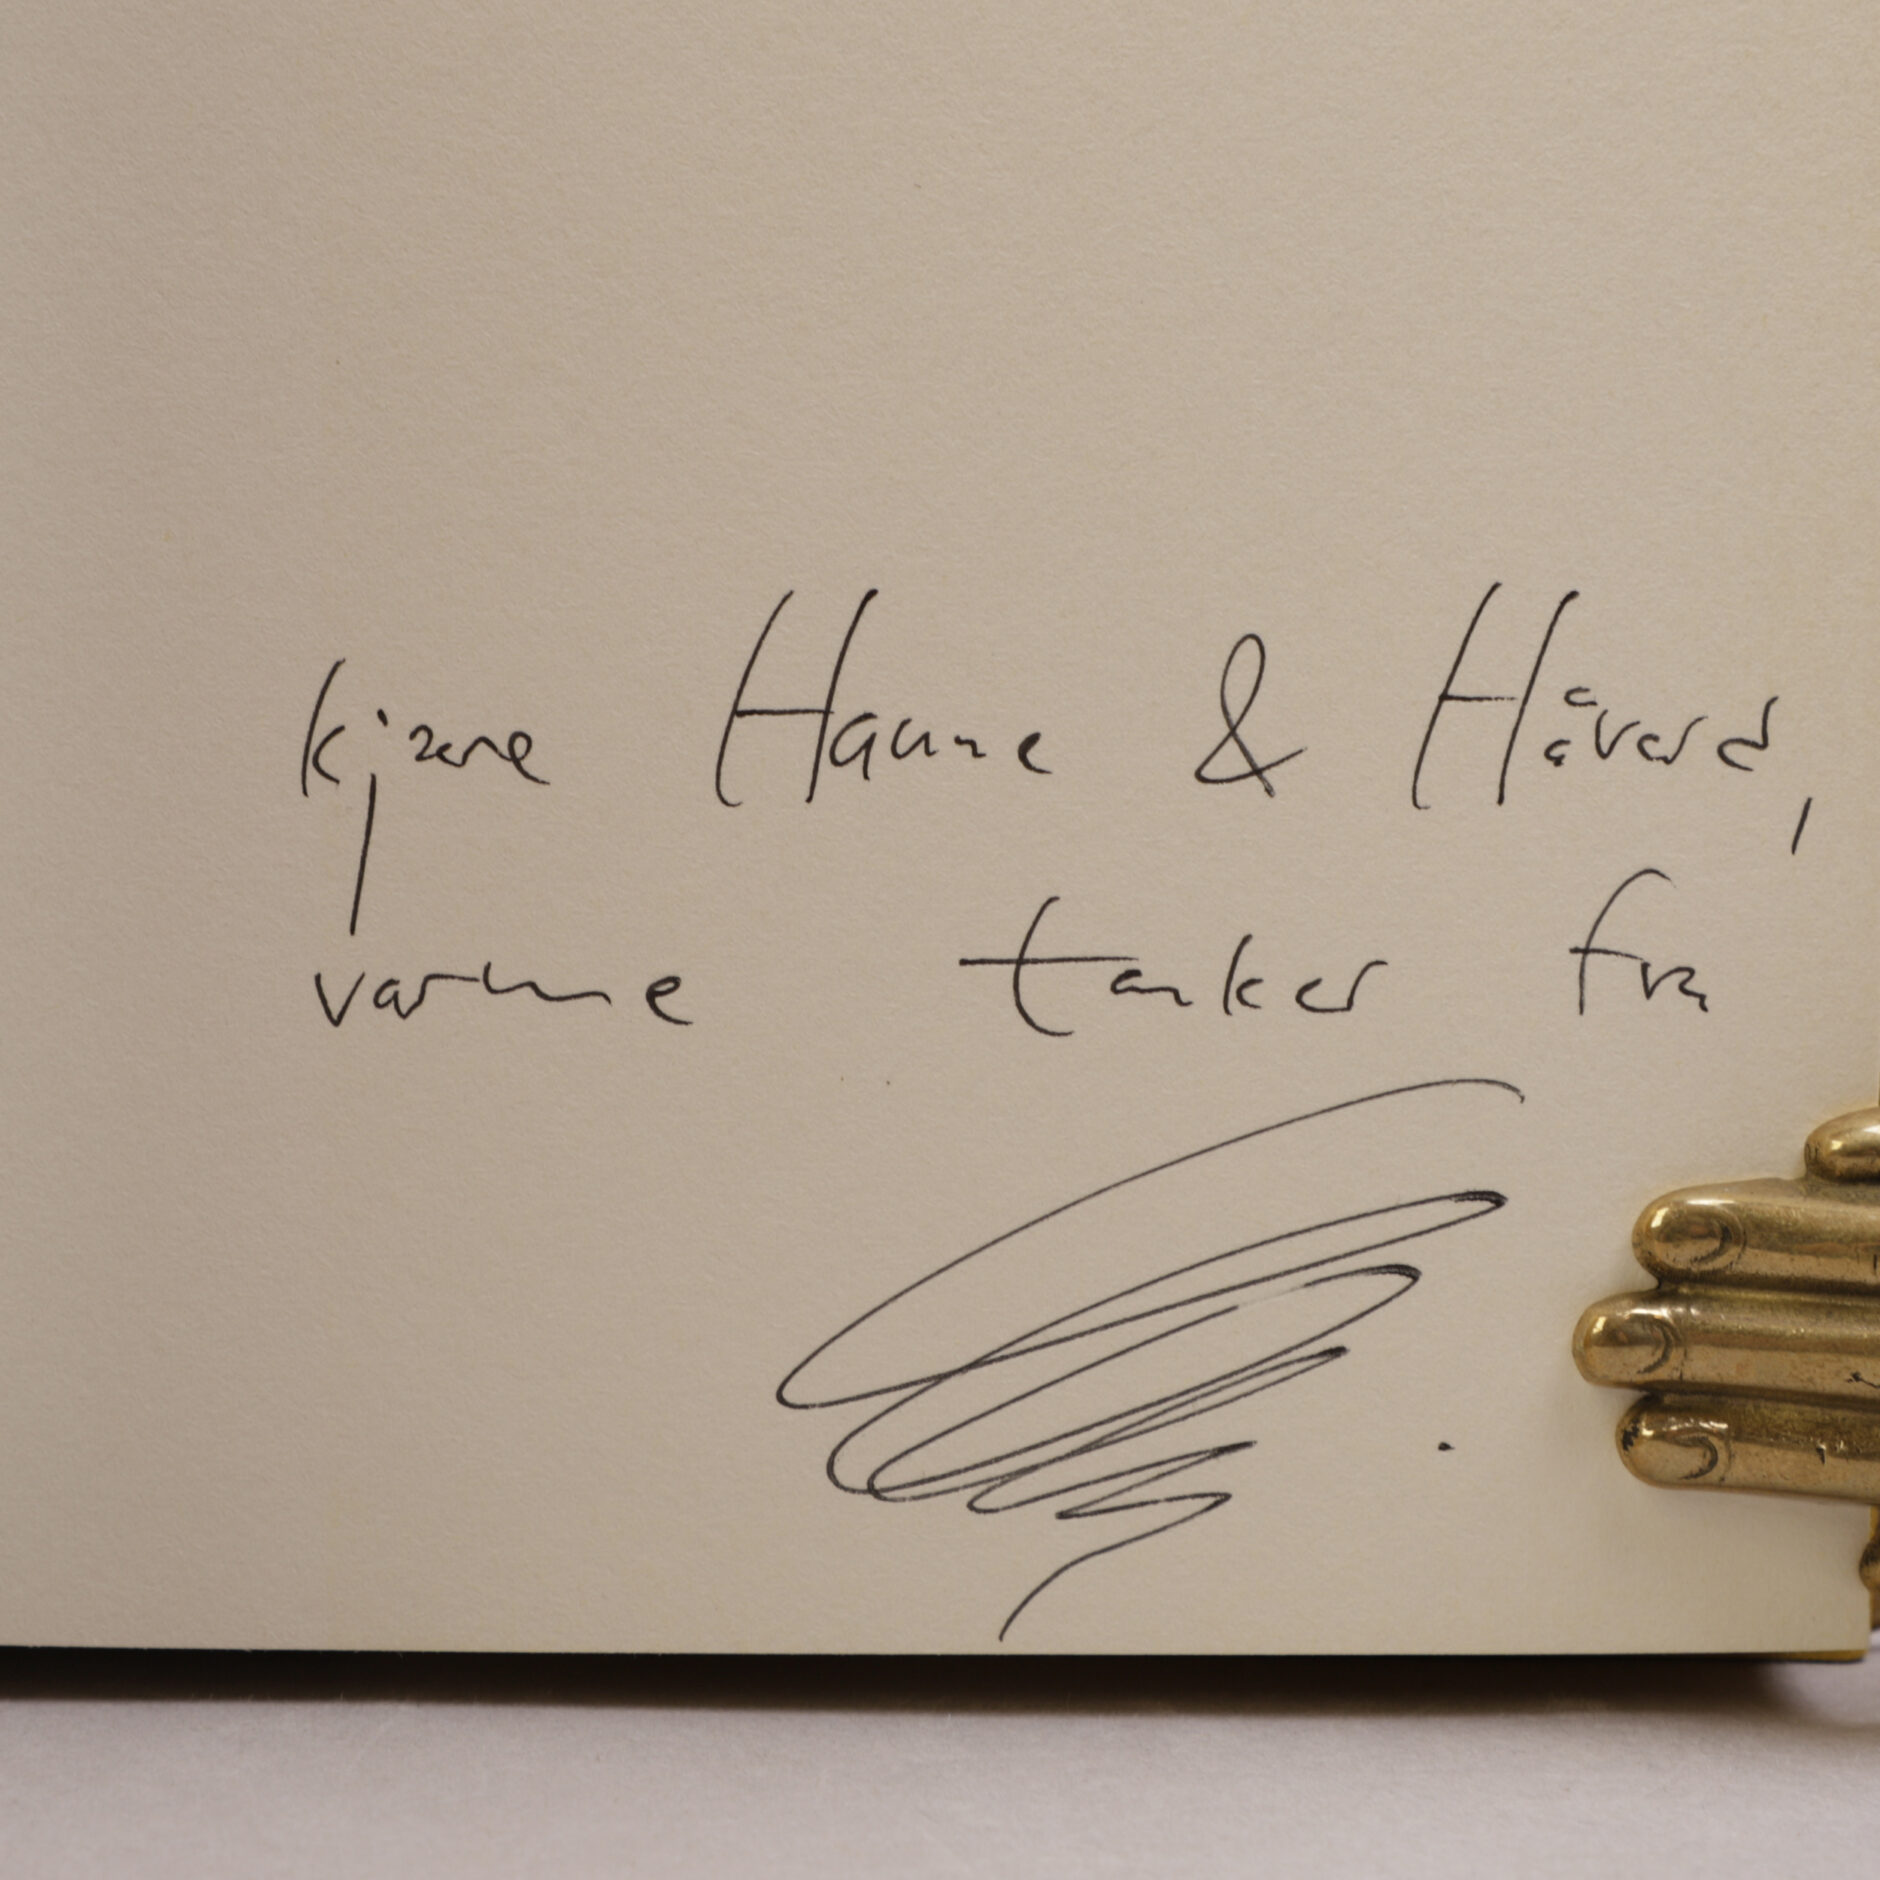 kjære Hanne & Håvard,
varme tanker fra